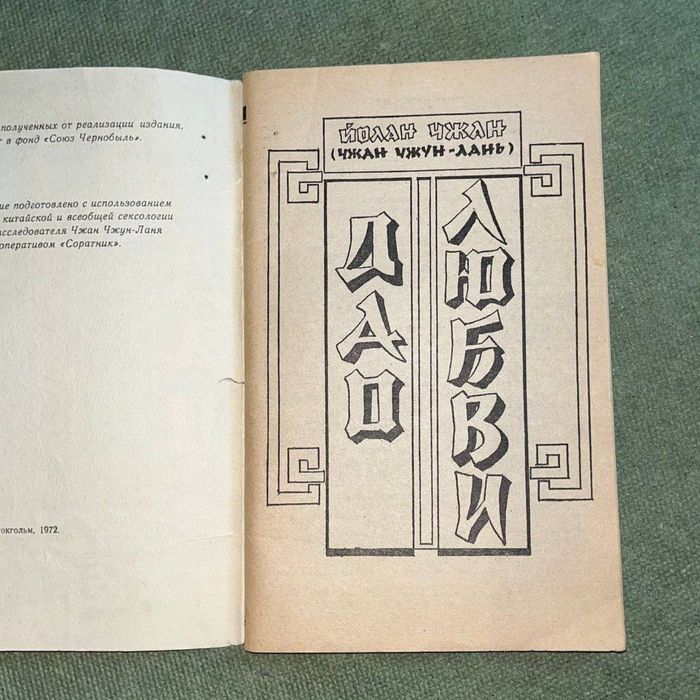 полученных от реализации издания,
в фонд «Союз Чернобыль».
подготовлено с использованием
китайской и всеобщей сексологии
Чжан Чжун-Ланя
«Соратник».
1972.
ЙОЛАН ЧЖАН
(ЧЖАН ЧЖУН-ЛАНЬ)
ДАО
ЛЮБВИ